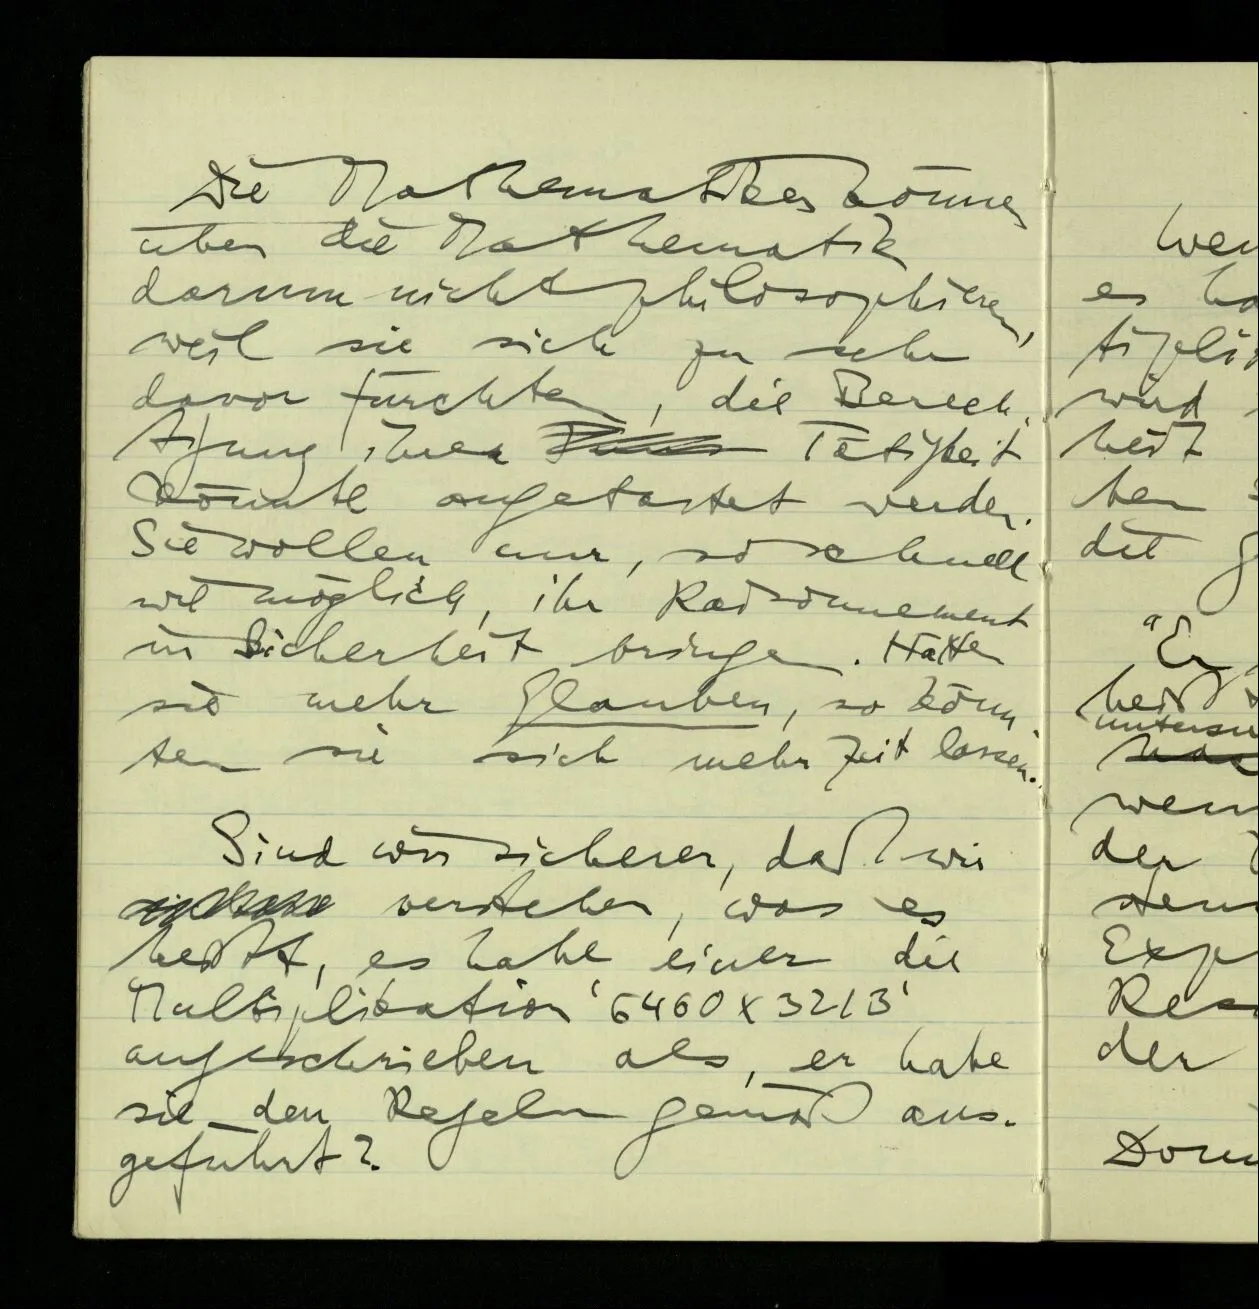 Die Mathematiker können
über die Mathematik
darum nicht philosophieren,
weil sie sich zu sehr
davor fürchten, die Berech-
tigung ihrer Tätigkeit
könnte angetastet werden.
Sie wollen nur, so schnell
wie möglich, ihr Raisonnement
in Sicherheit bringen. Hätten
sie mehr Glauben, so könn-
ten sie sich mehr Zeit lassen.
Sind wir sicherer, daß wir
verstehen, was es
heißt, es habe einer die
Multiplikation '6460 x 3213'
angeschrieben als, er habe
sie den Regeln gemäß aus-
geführt?
Wen
es ha
tipli
wird
heit
ben
die g
"Er
heiß
untersu
wenn
der
stem
Exp
Res
der
Dom